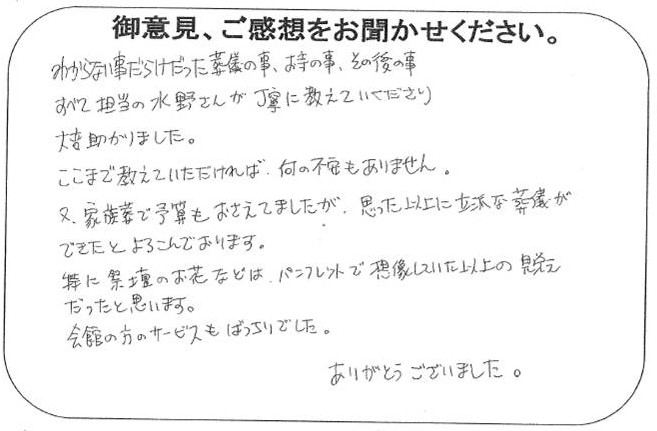 御意見、ご感想をお聞かせください。
わからない事だらけだった葬儀の事、お寺の事、その後の事
すべて担当の水野さんが丁寧に教えていくださり
大変助かりました。
ここまで教えていただければ、何の不安もありません。
又、家族葬で予算もおさえてましたが、思った以上に立派な葬儀が
できたとよろこんでおります。
特に祭壇のお花などは、パンフレットで想像していた以上の見栄え
だったと思います。
会館の方のサービスもばっちりでした。
ありがとうございました。